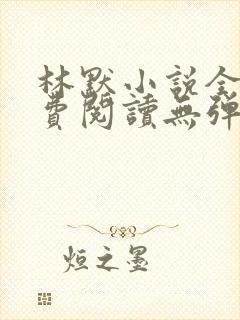 林默小说全
費閱讀無彈
烜之墨